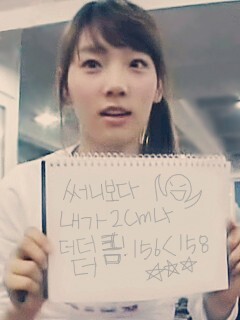 써니보다
내가 2cm나
더더 큼: 156<158
더